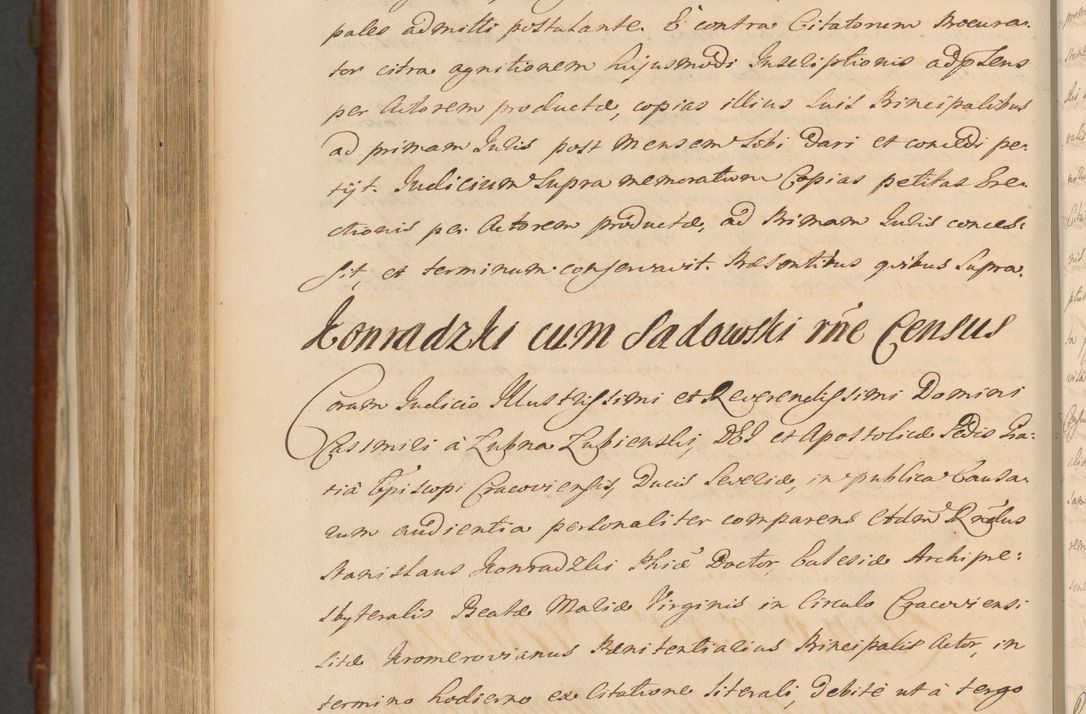 pales admitti postulante. E contra Citatorum Procura:
tor citra agnitionem hujusmodi Inscriptionis ad praesens
per Actorem productae, copias illius suis Principalibus
ad primam Juris post Mensem sibi dari et concedi pe:
tijt. Judicium supra memoratum Copias petitas Ere:
ctionis per Actorem productae, ad Primam Juris conces:
sit, et terminum conservavit. Praesentibus quibus supra.
Konradzki cum Sadowski rñe Census
Coram Judicio Illustrissimi et Reverendissimi Domini
Casimiri à Łubna Łubienski, DEI et Apostolicae Sedis Gra:
tiâ Episcopi Cracoviensis, Ducis Severiae, in publica Causa:
rum audientia personaliter comparens Admˢ Rñdus
Stanislaus Konradzki Phiae Doctor, Ecclesiae Archipre:
sbyteralis Beatae Mariae Virginis in Circulo Cracoviensi
sitae Kromerovianus Paenitentiarius Principalis Actor, in
termino hodierno ex Citatione literali, debitè ut à tergo